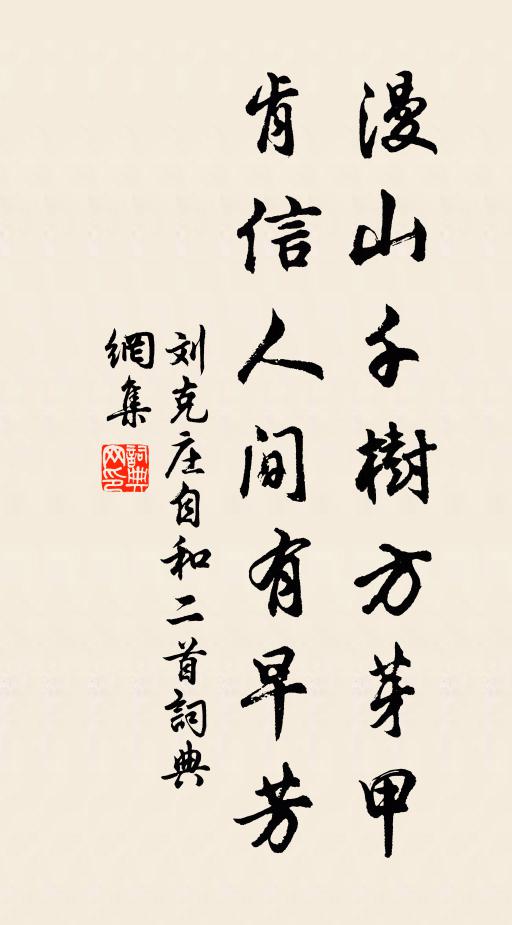 漫山千樹方芽甲
肯信人间有早芳
刘克庄自和二首詞典
網集
詞典
网印